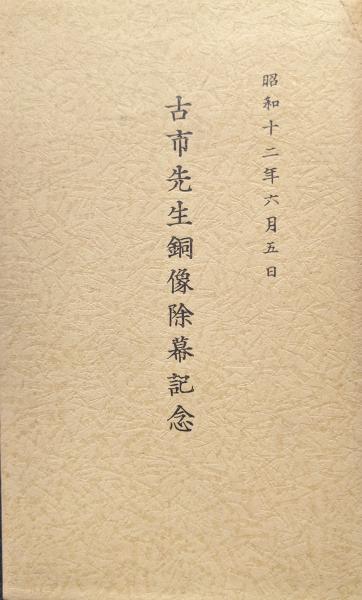 昭和十二年六月五日
古市先生銅像除幕記念